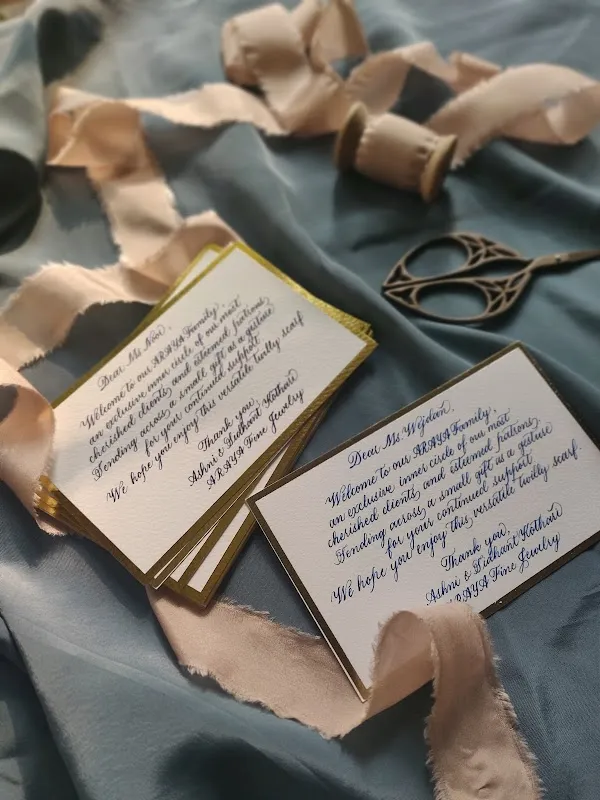 Dear Ms. Noor,
Welcome to our ARAYA Family,
an exclusive inner circle of our most
cherished clients and esteemed patrons.
Sending across a small gift as a gesture
for your continued support.
We hope you enjoy this versatile twilly scarf
Thank you,
Ashni & Sidhant Kothari
ARAYA Fine Jewelry
Dear Ms. Wejdan,
Welcome to our ARAYA Family,
an exclusive inner circle of our most
cherished clients and esteemed patrons.
Sending across a small gift as a gesture
for your continued support.
We hope you enjoy this versatile twilly scarf.
Thank you,
Ashni & Sidhant Kothari
ARAYA Fine Jewelry